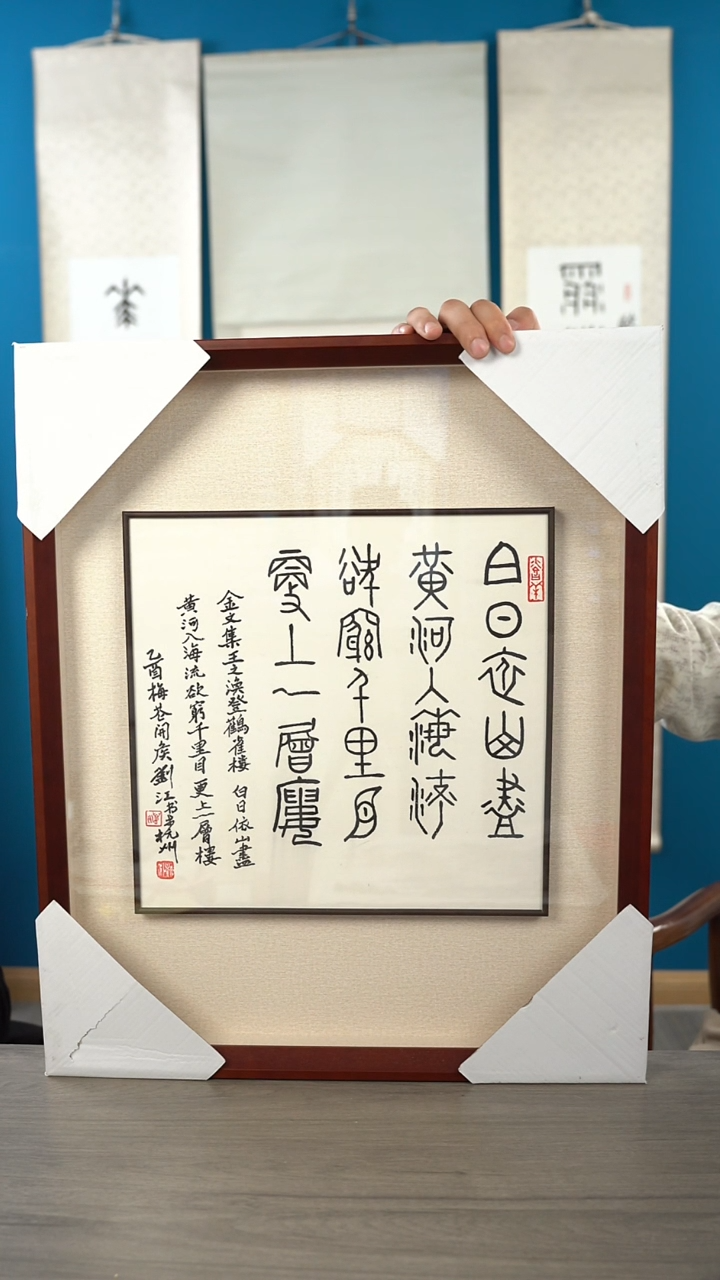 白日依山盡
黃河入海流
欲窮千里目
更上一層樓
金文集王之渙登鶴雀樓 白日依山盡
黃河入海流欲窮千里目更上一層樓
乙酉梅苍開候劉江书于杭州